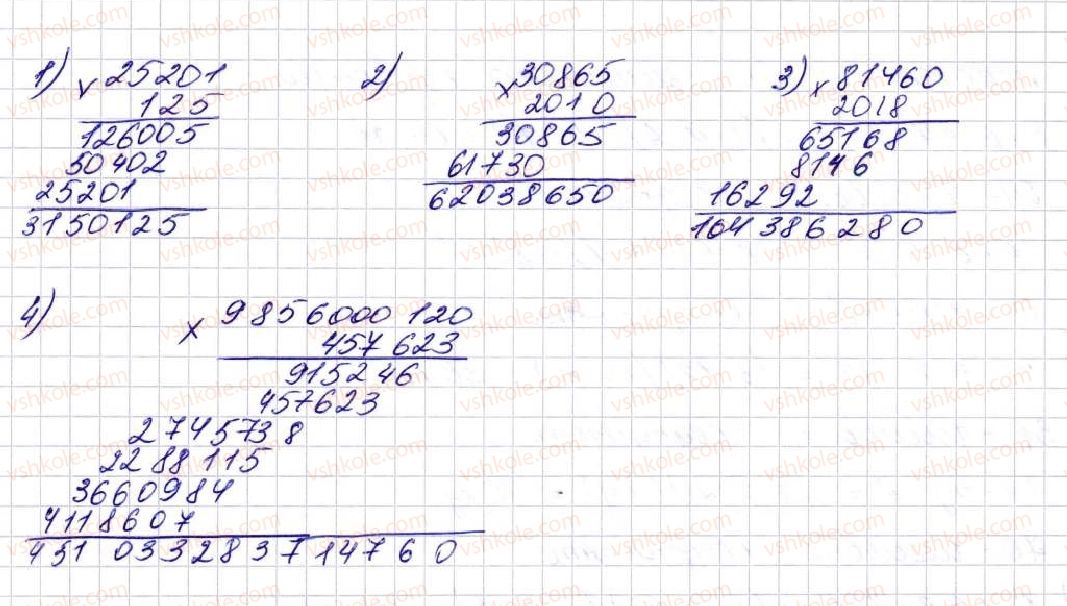 1) × 25201
125
126005
50402
25201
3150125
2) × 30865
2010
30865
61730
62038650
3) × 81460
2018
65168
8146
16292
164386280
4) × 9856000120
457623
915246
457623
2745738
2288115
3660984
4118607
451033283714760